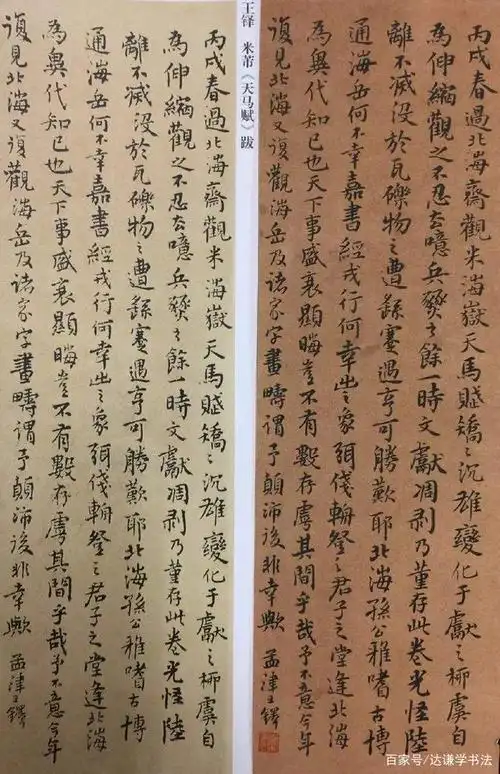 丙戌春過北海齋觀米海嶽天馬賦矯〻沉雄變化于獻之柳虞自
為伸縮觀之不忍去噫兵燹之餘一時文獻凋剥乃董存此卷光怪陸
離不滅没於瓦礫物之遭繇蹇遇亨可勝歎耶北海孫公雅嗜古博
通海岳何不幸嘉書經戎行何幸出之象弭俴輈登之君子之堂逢北海
為異代知己也天下事盛衰顯晦豈不有數存虖其間乎哉予不意今年
復見北海又復觀海岳及諸家字畫疇謂予顛沛後非幸歟 孟津王鐸
王铎 米芾《天马赋》跋
丙戌春過北海齋觀米海嶽天馬賦矯〻沉雄變化于獻之柳虞自
為伸縮觀之不忍去噫兵燹之餘一時文獻凋剥乃董存此卷光怪陸
離不滅没於瓦礫物之遭繇蹇遇亨可勝歎耶北海孫公雅嗜古博
通海岳何不幸嘉書經戎行何幸出之象弭俴輈登之君子之堂逢北海
為異代知己也天下事盛衰顯晦豈不有數存虖其間乎哉予不意今年
復見北海又復觀海岳及諸家字畫疇謂予顛沛後非幸歟 孟津王鐸
百家号/达谦学书法